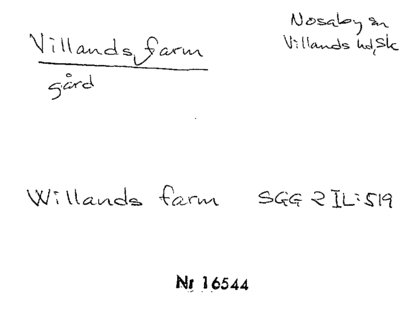 Villands farm
gård
Nosaby sn
Villands hd, Sk
Willands farm SGG 2 IL:519
Nr 16544